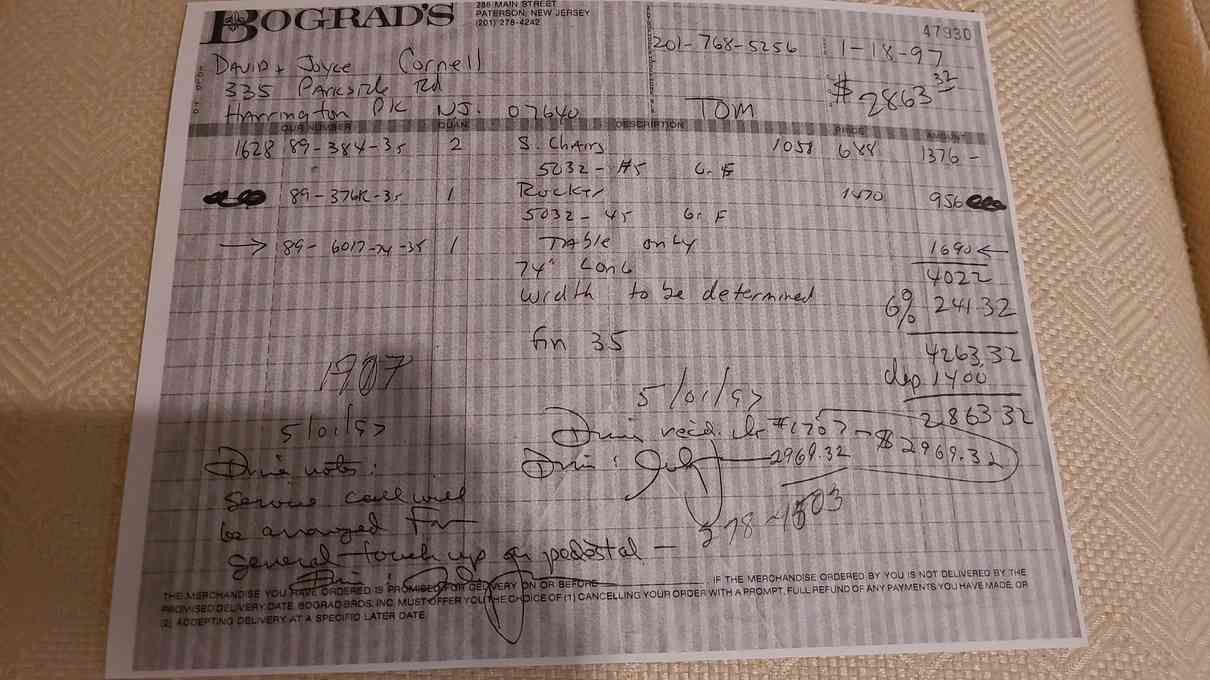 BOGRAD'S
288 MAIN STREET
PATERSON, NEW JERSEY
(201) 278-4242
47930
201-768-5256
1-18-97
DAVID + Joyce Cornell
335 Parkside Rd
$2863 32
Harrington PK NJ. 07640
TOM
OUR NUMBER QUAN. DESCRIPTION PRICE AMOUNT
1628 89-384-35 2 S. Chairs 1058 688 1376-
5032-45 Gr. F
89-376R-35 1 Rocker 1470 956
5032-45 Gr. F
→ 89-6017-74-35 1 TABLE only 1690 ←
74" Long 4022
Width to be determined 6% 241.32
fin 35 4263.32
dep 1400
1907
2863 32
5/01/97
5/01/97
recd. ck #1707 - $2969.32
2969.32
notes:
Service call will
be arranged for
general touch up on pedestal -
278-4503
THE MERCHANDISE YOU HAVE ORDERED IS PROMISED FOR DELIVERY ON OR BEFORE IF THE MERCHANDISE ORDERED BY YOU IS NOT DELIVERED BY THE
PROMISED DELIVERY DATE, BOGRAD BROS. INC. MUST OFFER YOU THE CHOICE OF (1) CANCELLING YOUR ORDER WITH A PROMPT, FULL REFUND OF ANY PAYMENTS YOU HAVE MADE, OR
(2) ACCEPTING DELIVERY AT A SPECIFIC LATER DATE